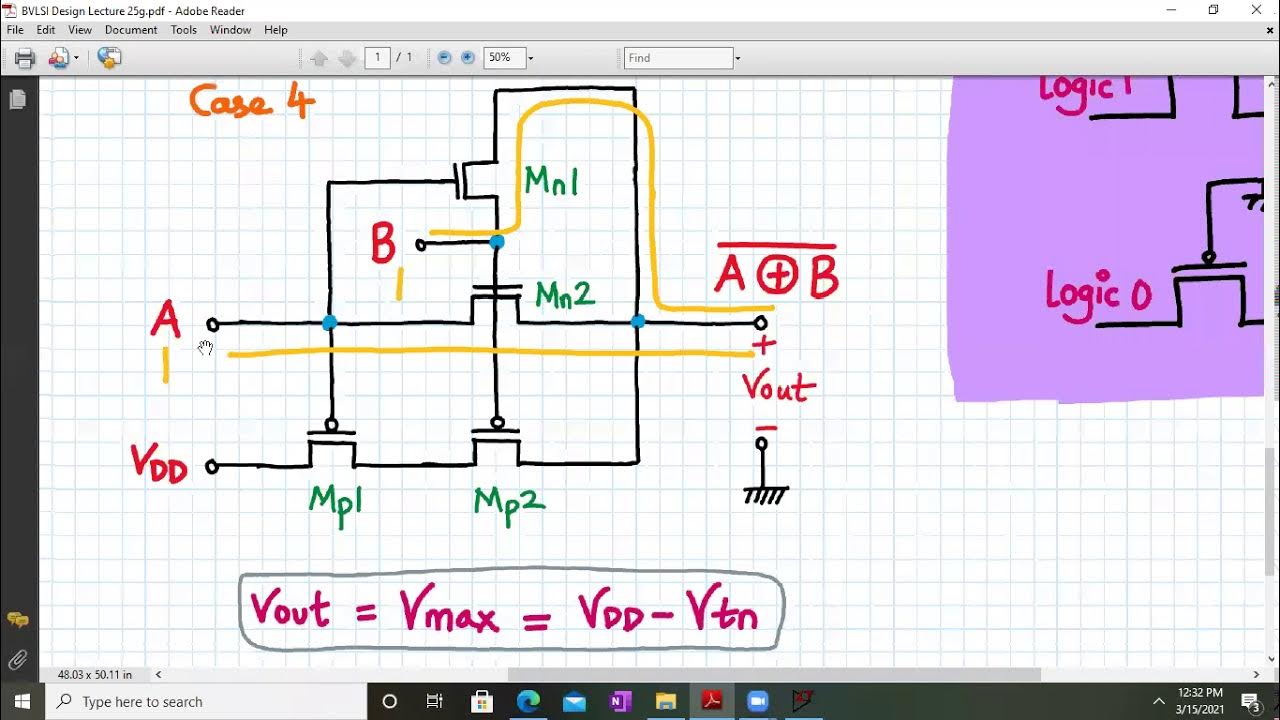 BVLSI Design Lecture 25g.pdf - Adobe Reader
File Edit View Document Tools Window Help
1 / 1 50% Find
Case 4
Logic 1
Mn1
B
1
A ⊕ B
Mn2
Logic 0
A
1
+
Vout
-
VDD
Mp1 Mp2
Vout = Vmax = VDD - Vtn
48.03 x 50.11 in
Type here to search
12:32 PM
3/15/2021
3